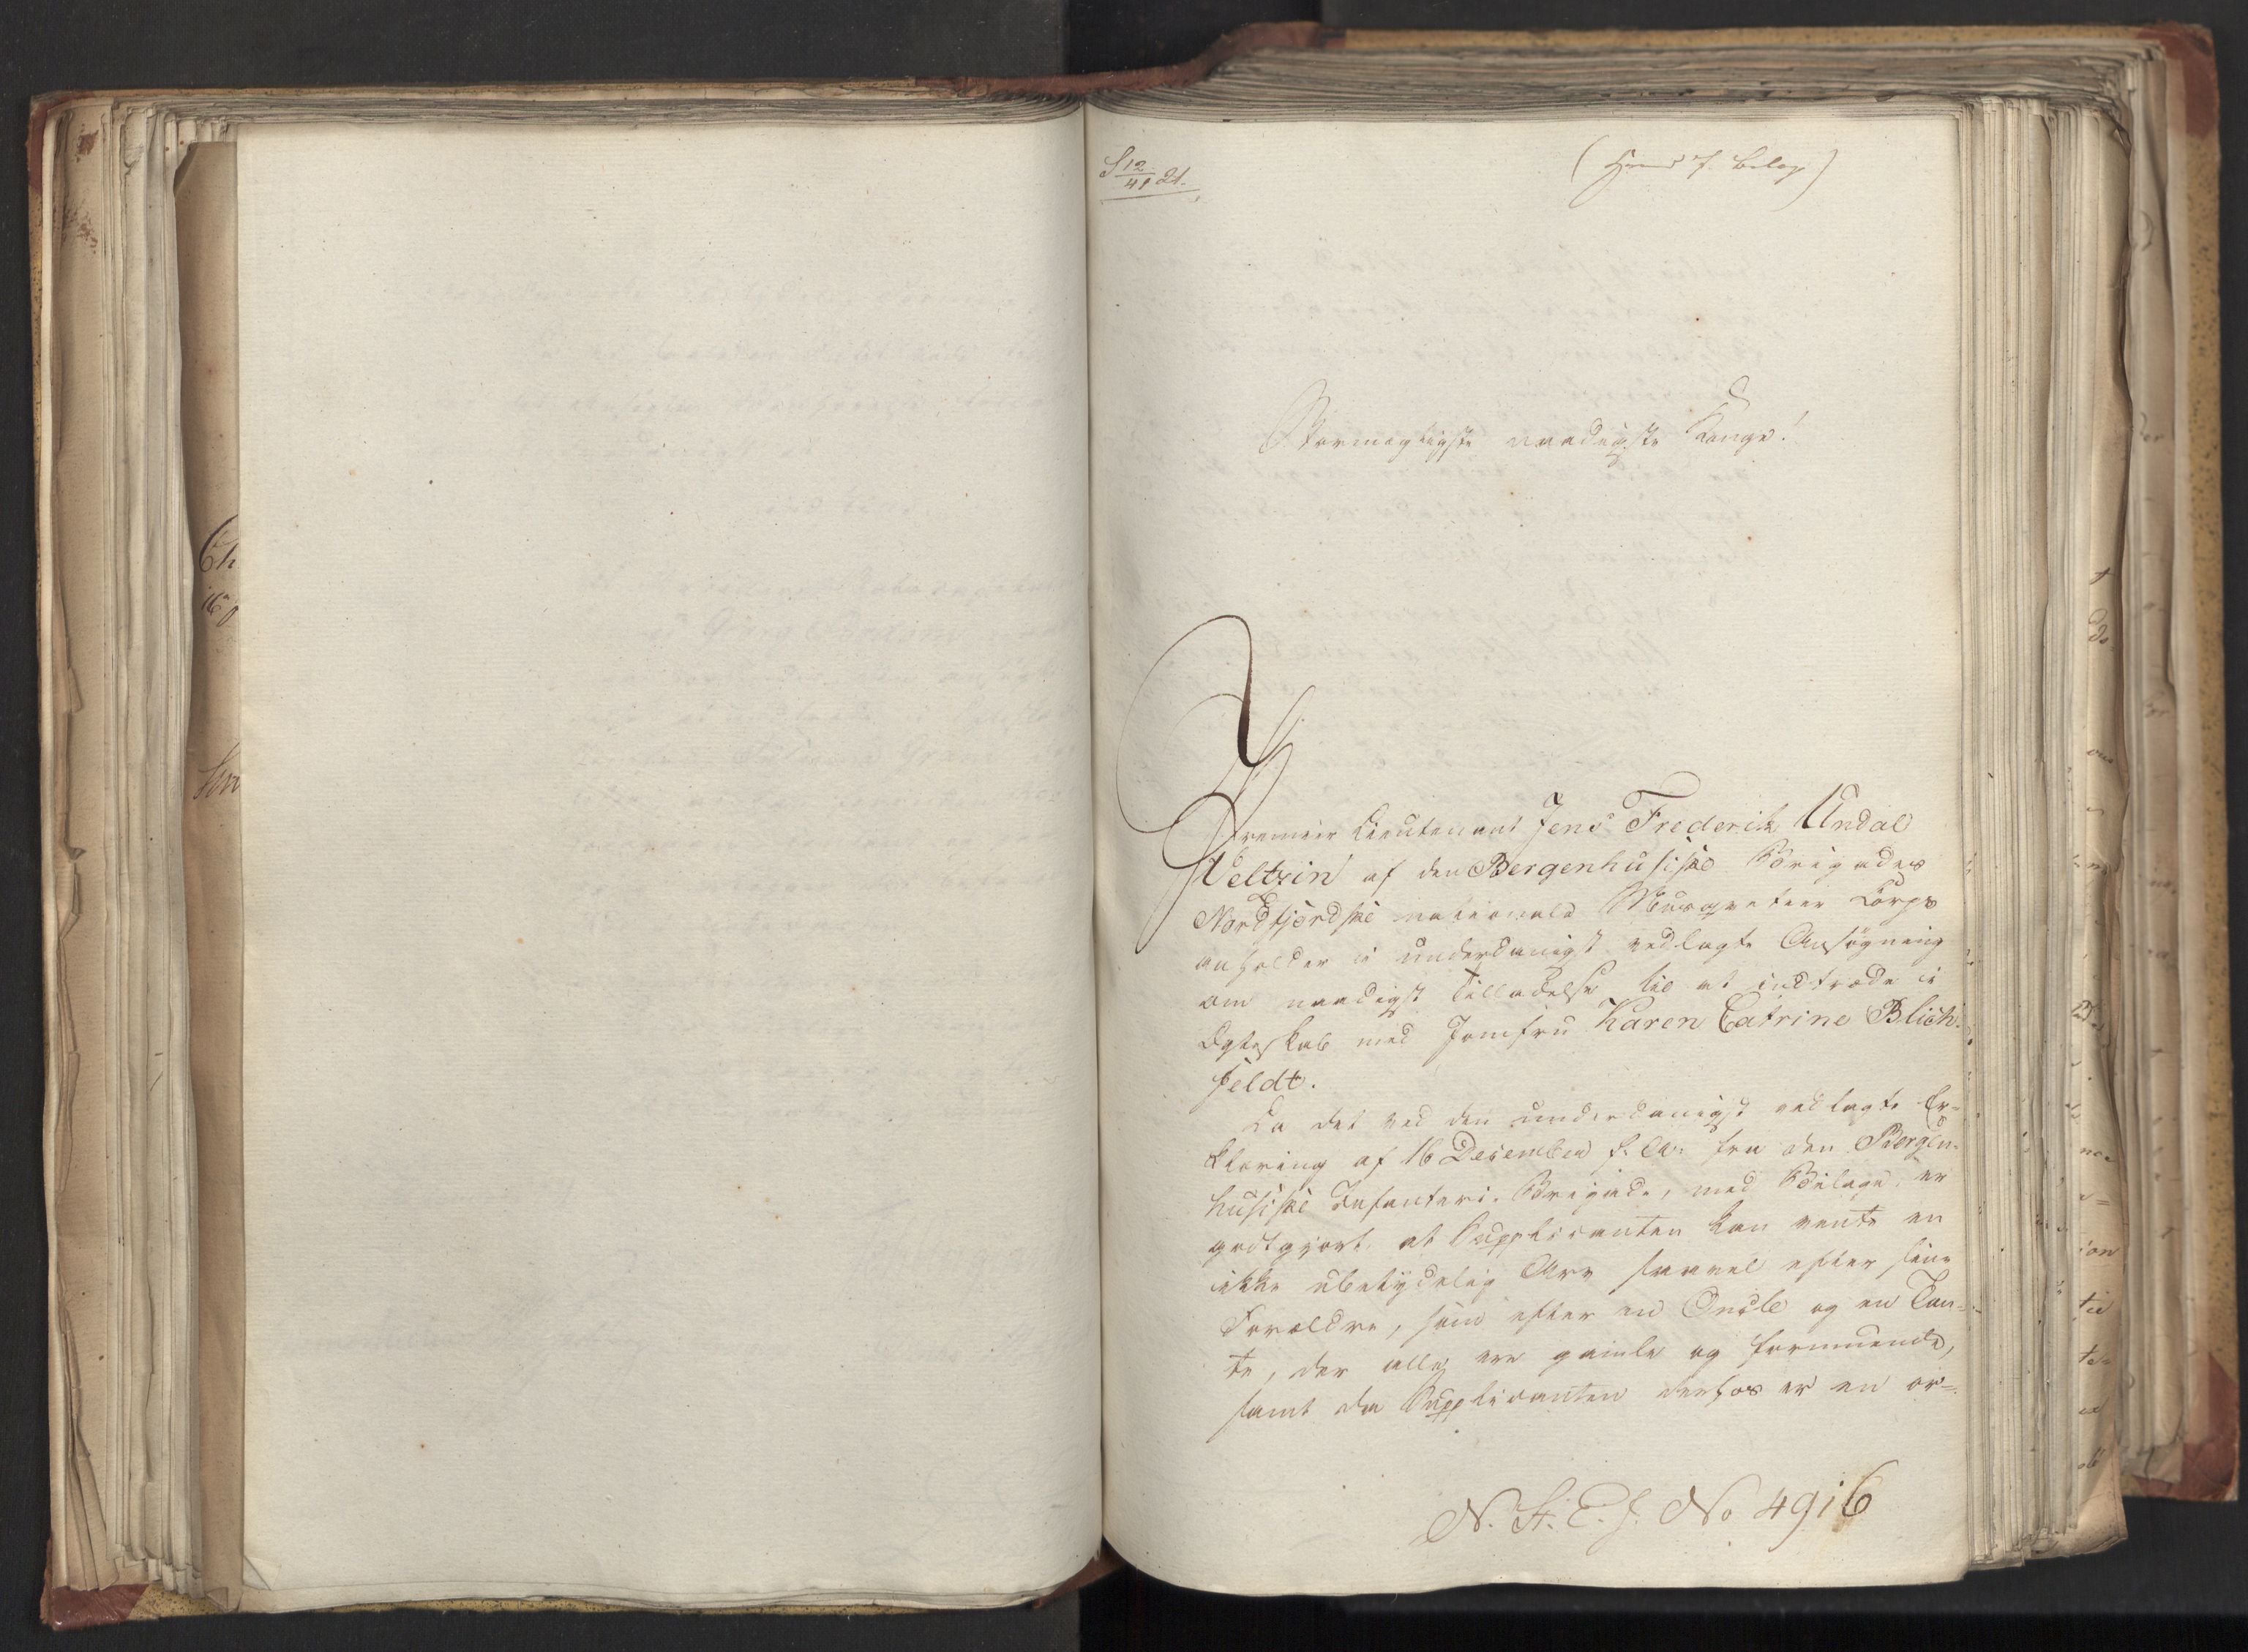 S 12/41 21.
( 7 Bilag )
Stormægtigste naadigste Konge!
Premier Lieutenant Jens Frederik Undal
Veltzin af den Bergenhusiske Brigades
Nordfjordske nationale Musqveteer Corps
anholder i underdanigst vedlagte Ansøgning
om naadigst Tilladelse til at indtræde i
Ægteskab med Jomfru Karen Catrine Blich-
feldt.
Da det ved den underdanigst vedlagte Er-
klæring af 16 Desember f. A. fra den Bergen-
husiske Infanteri-Brigade, med Bilage, er
godtgjort, at Supplicanten kan vente en
ikke ubetydelig Arv saavel efter sine
Forældre, som efter en Oncle og en Tan-
te, der alle ere gamle og formuende,
samt da Supplicanten derhos er en or-
N. St. E. J. No 4916
Ch
16